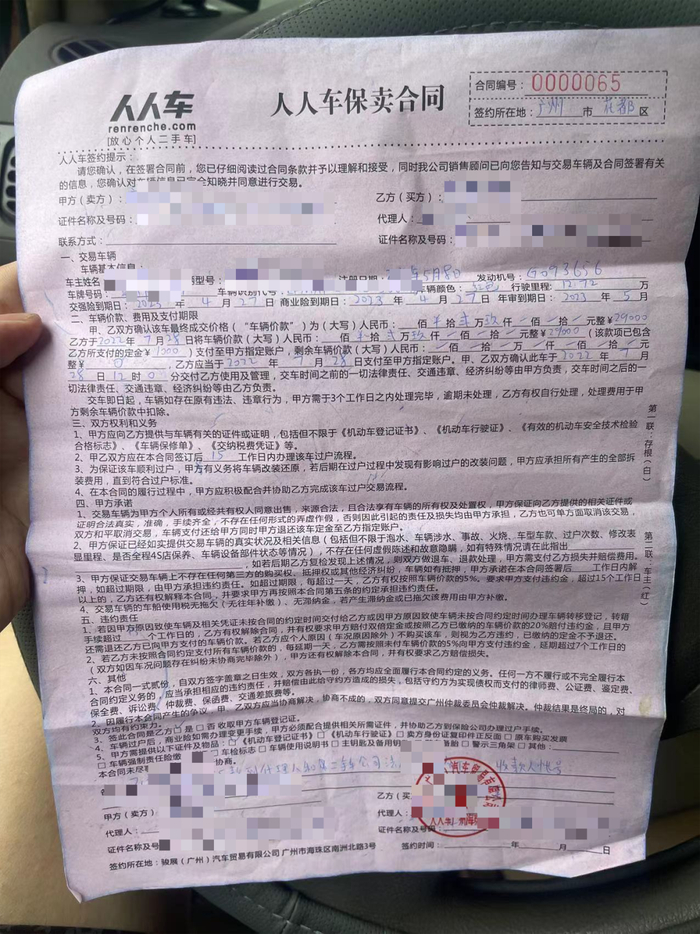 人人车
renrenche.com
[放心个人二手车]
人人车保卖合同
合同编号：0000065
签约所在地：广州 市 花都 区
人人车签约提示：
请您确认，在签署合同前，您已仔细阅读过合同条款并予以理解和接受，同时我公司销售顾问已向您告知与交易车辆及合同签署有关
的信息，您确认对车辆信息已完全知晓并同意进行交易。
甲方（卖方）：
乙方（买方）：
证件名称及号码：
代理人：
联系方式：
证件名称及号码：
一、交易车辆
车辆基本信息：
车主姓名 型号： 注册日期： 年5月8日 发动机号：G093656
车牌号码： 车辆颜色： 行驶里程：12.72 万
交强险到期日：2023年4月27日 商业险到期日：2023年4月27日 年审到期日：2023年5月
二、车辆价款、费用及支付期限
甲、乙双方确认该车最终成交价格（“车辆价款”）为（大写）人民币： 佰 拾贰万玖仟 佰 拾 元整¥29000
乙方于2022年7月28日将车辆价款（大写）人民币： 佰 拾贰万玖仟 佰 拾 元整¥29000（该款项已包含
乙方所支付的定金¥1000）支付至甲方指定账户，剩余车辆价款（大写）人民币： 佰 拾 万 仟 佰 拾 元
整¥ 0 ，乙方应当于2022年7月28日支付至甲方指定账户。甲、乙双方确认此车于2022年7月
28日12时0分交付乙方使用及管理，交车时间之前的一切法律责任、交通违章、经济纠纷等由甲方负责，交车时间之后的一
切法律责任、交通违章、经济纠纷等由乙方负责。
交车即日起，车辆如存在原有违法、违章行为，甲方需于3个工作日之内处理完毕，逾期未处理，乙方有权自行处理，处理费用于甲
方剩余车辆价款中扣除。
三、双方权利和义务
1、甲方应向乙方提供与车辆有关的证件或证明，包括但不限于《机动车登记证书》、《机动车行驶证》、《有效的机动车安全技术检验
合格标志》、《车辆保修单》、《交纳税费凭证》等。
2、甲乙双方应在本合同签订后15工作日内办理该车过户流程。
3、为保证该车顺利过户，甲方有义务将车辆改装还原，若后期在过户过程中发现有影响过户的改装问题，甲方应承担所有产生的全部拆
装费用，直到符合过户标准。
4、在本合同的履行过程中，甲方应积极配合并协助乙方完成该车过户交易流程。
四、甲方承诺
1、交易车辆为甲方个人所有或经共有权人同意出售，来源合法，且合法享有车辆的所有权及处置权，甲方保证向乙方提供的相关证件或
证明合法真实，准确，手续齐全，不存在任何形式的弄虚作假，否则因此引起的责任及损失均由甲方承担，乙方也可单方面取消该交易，
双方和平取消交易，车辆支付还给甲方同时甲方退还该车定金至乙方指定账户。
2、甲方保证已经如实提供交易车辆的真实状况及相关信息（包括但不限于泡水、车辆涉水、事故、火烧、车型车款、过户次数、修改表
显里程、是否全程4S店保养、车辆设备部件状态等情况），不存在任何虚假陈述和故意隐瞒，如有特殊情况请在此指出
，如若后期乙方复检发现上述情况，则双方做退车、退款处理，甲方需支付乙方损失并赔偿费用。
3、甲方保证交易车辆上不存在任何第三方的购买权、抵押权或其他经济纠纷，车辆如有抵押，甲方承诺在本合同签署后 工作日内解
押，如超过期限，由甲方承担违约责任。如超过期限，每超过一天，乙方有权按照车辆价款的5%。要求甲方支付违约金，超过15个工作日
以上的，乙方还有权解除本合同，并要求甲方再按照本合同第五条的约定承担违约责任。
4、交易车辆的车船使用税无拖欠（无往年补缴）、无滞纳金，若产生滞纳金或已拖欠该费用由甲方补缴。
五、违约责任
1、若因甲方原因致使车辆及相关凭证未按照合同的约定时间交付给乙方或因甲方原因致使车辆未按合同约定时间办理车辆转移登记，转籍
手续超过 个工作日的，乙方有权解除合同，并有权要求甲方赔付双倍定金或按照乙方已缴纳的车辆价款的20%赔付违约金，且甲方
还需退还乙方已向甲方支付的车辆价款。若乙方应个人原因（车况原因除外）不购买该车，则视为乙方违约，已缴纳的定金不予退还。
2、若乙方未按照合同约定支付所有车辆价款的，每延期一天，乙方需按照未付车辆价款的5%向甲方支付违约金，延期超过7个工作日的
（双方如因车况问题存在纠纷未协商完毕除外），甲方还有权解除本合同，并有权要求乙方赔偿损失。
六、其他
1、本合同一式贰份，自双方签字盖章之日生效，双方各执一份，各方均应全面履行本合同约定的义务。任何一方不履行或不完全履行本
合同约定义务的，应当承担相应的违约责任，并赔偿由此给守约方造成的损失，包括守约方为实现债权而支付的律师费、公证费、鉴定费、
保全费、诉讼费、仲裁费、保函费、交通差旅费等。
2、因履行本合同产生的争议，甲、乙双方应当协商解决，协商不成的，双方同意提交广州仲裁委员会仲裁解决。仲裁结果是终局的，对
双方均有约束力。
3、签此合同是乙方□是 □否 收取甲方车辆登记证。
4、车辆过户后，商业险如需办理变更手续，甲方必须配合提供相关所需证件，并协助乙方到保险公司办理过户手续。
5、甲方需提供以下证件及物品：□《机动车登记证书》 □《机动车行驶证》 □卖方身份证复印件正反面 □原车购买发票
□车辆强制责任险缴 □车检标志 □车辆使用说明书 □主钥匙及备用钥匙 □备胎 □警示三角架 □其他：
本合同未尽 协商。
甲方（卖方）：
乙方（买
代理人：
代理人：
证件名称及号码：
证件名称及号
签约所在地：骏展（广州）汽车贸易有限公司 广州市海珠区南洲北路3号
签约时间： 年 月 日
第一联：存根（白）
第二联：车主（红）